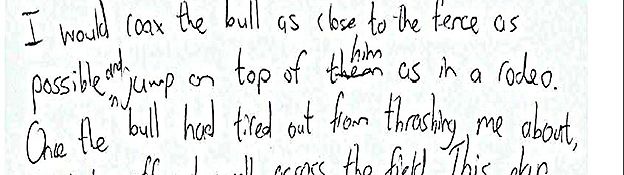 I would coax the bull as close to the fence as
possible and jump on top of him as in a rodeo.
Once the bull had tired out from thrashing me about,
off and across the field. This plan